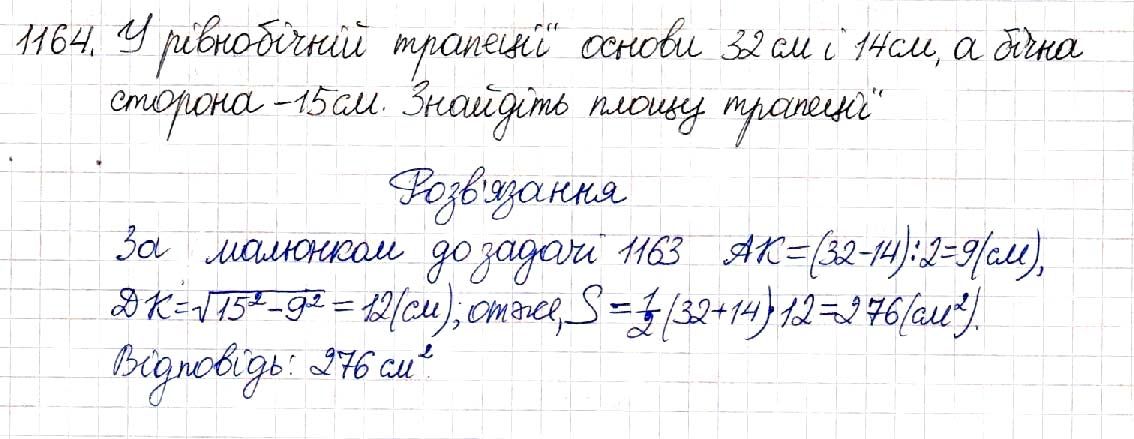 1164. У рівнобічній трапеції основи 32 см і 14 см, а бічна
сторона - 15 см. Знайдіть площу трапеції
Розв'язання
За малюнком до задачі 1163 АК = (32-14):2=9(см),
ДК = √15²-9² = 12(см); отже, S = 1/2 (32+14)·12=276(см²).
Відповідь: 276 см².